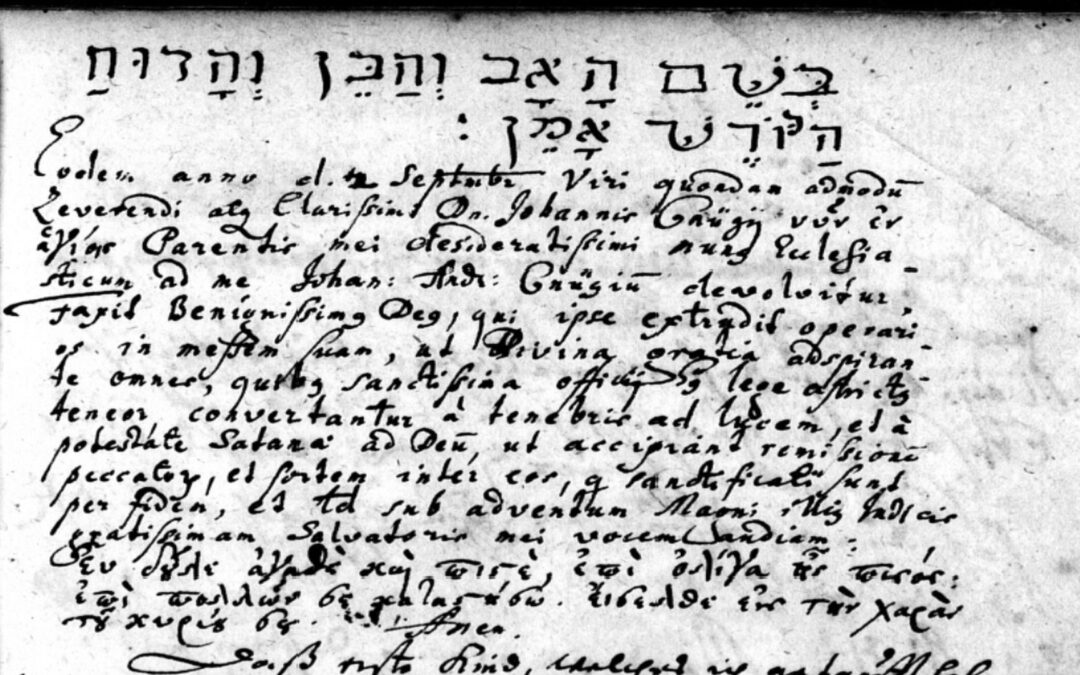 בְּשֵׁם הָאָב וְהַבֵּן וְהָרוּחַ
הַקּוֹדֶשׁ אָמֵן :
Eodem anno d. Septembr Viri quondam admodū
Reverendi atq Clarissimi Dn. Johannis Cnügij νῦν ἐν
ἁγίοις Parentis mei desideratissimi munq Ecclesia-
sticum ad me Johan: Andr: Cnügiū devolvitur
Faxit Benignissimq Deq, qui ipse extrudit operari-
os in messem suam, ut Divina gratia adspiran-
te omnes, quibq sanctissima officij lege astrictq
teneor convertantur à tenebris ad lucem, et à
potestate Satanæ ad Deū, ut accipiant remissionē
peccator, et sortem inter eos, q sanctificati sunt
per fidem, et sub adventum Magni illiq Judicis
gratissimam Salvatoris mei vocem audiam:
Εὖ δοῦλε ἀγαθὲ καὶ πιστὲ, ἐπὶ ὀλίγα ἦς πιστός:
ἐπὶ πολλῶν σε καταστήσω. Εἴσελθε εἰς τὴν χαρὰν
τοῦ κυρίου σου. Amen.
Kind,